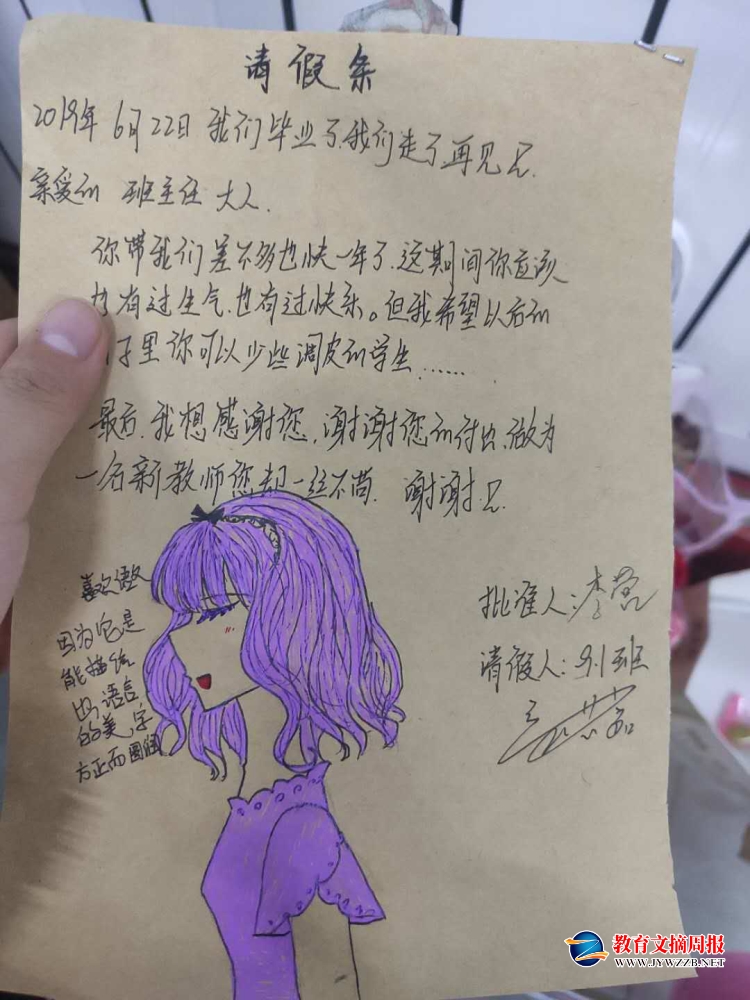 请假条
2019年6月22日 我们毕业了.我们走了再见了.
亲爱的 班主任 大人.
你带我们差不多也快一年了.这期间你应该
也有过生气.也有过快乐。但我希望以后的
子里你可以少些调皮的学生……
最后.我想感谢您.谢谢您的付出.做为
一名新教师您却一丝不苟. 谢谢了.
喜欢
因为它是
能描绘
出语言
的美,字
方正而圆润
批准人:李
请假人:9.1班
教育文摘周报
WWW.JYWZZB.NET